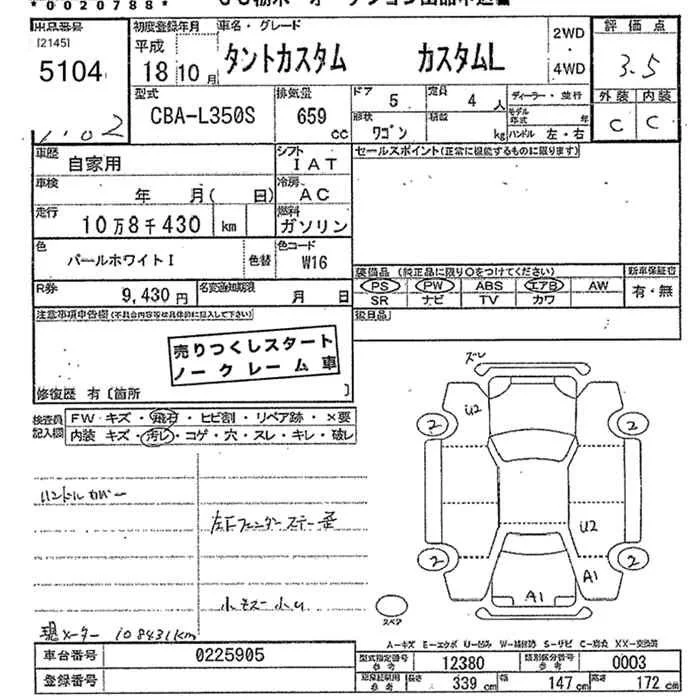 *0020788*
出品番号 [2145] 5104
初度登録年月 平成 18年10月
車名・グレード タントカスタム カスタムL
2WD ・ 4WD
評価点 3.5
外装 内装
C C
型式 CBA-L350S
排気量 659 cc
ドア 5 定員 4 人
形状 ワゴン 積載 kg
ディーラー・並行
モデル年式 年
ハンドル 左・右
車歴 自家用
シフト IAT
車検 年 月( 日)
冷房 AC
走行 10万8千430 km
燃料 ガソリン
色 パールホワイトI 色替
色コード W16
R券 9,430円
名変通知期限 月 日
セールスポイント(正常に機能するものに限ります)
装備品 (純正品に限り○をつけてください)
新車保証書
PS PW ABS エアB AW 有・無
SR ナビ TV カワ
後日品
注意事項申告欄(不具合内容等は具体的に記入して下さい)
売りつくしスタート
ノークレーム車
修復歴 有〔箇所 〕
検査員記入欄
FW キズ・飛石・ヒビ割・リペア跡・×要
内装 キズ・汚レ・コゲ・穴・スレ・キレ・破レ
ハンドルカバー
左下フェンダーステー歪
現メーター 108431km
ズレ
U2
2 2
U2
2 2
A1 A1
スペア
A-キズ E-エクボ U-凹み
車台番号 0225905
登録番号
型式指定番号 参考 12380
類別区分番号 参考 0003
長さ 339 cm 幅 147 cm 高さ 172 cm